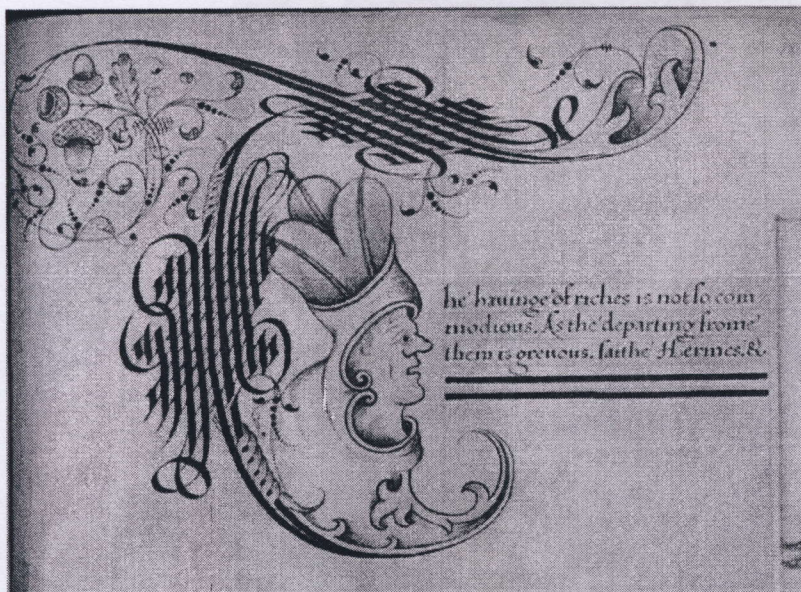 The hauinge of riches is not so com
modious. As the departing frome
them is greuous. saithe Hermes. &.